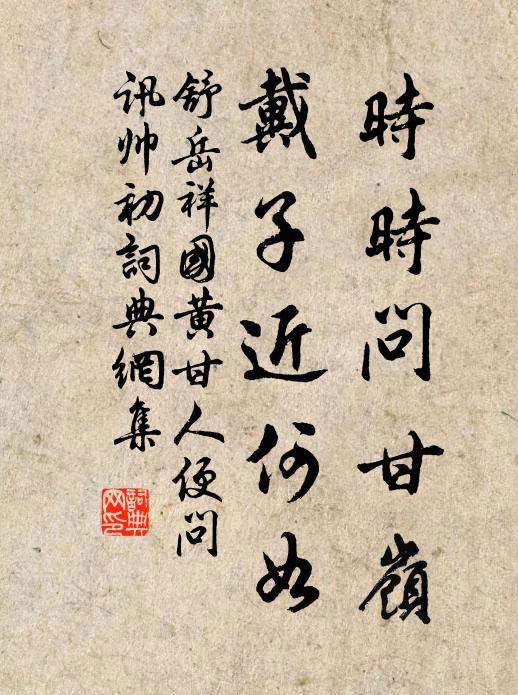 時時問甘嶺
戴子近何如
舒岳祥國黃甘人便問
訊帅初詞典網集
詞典网印